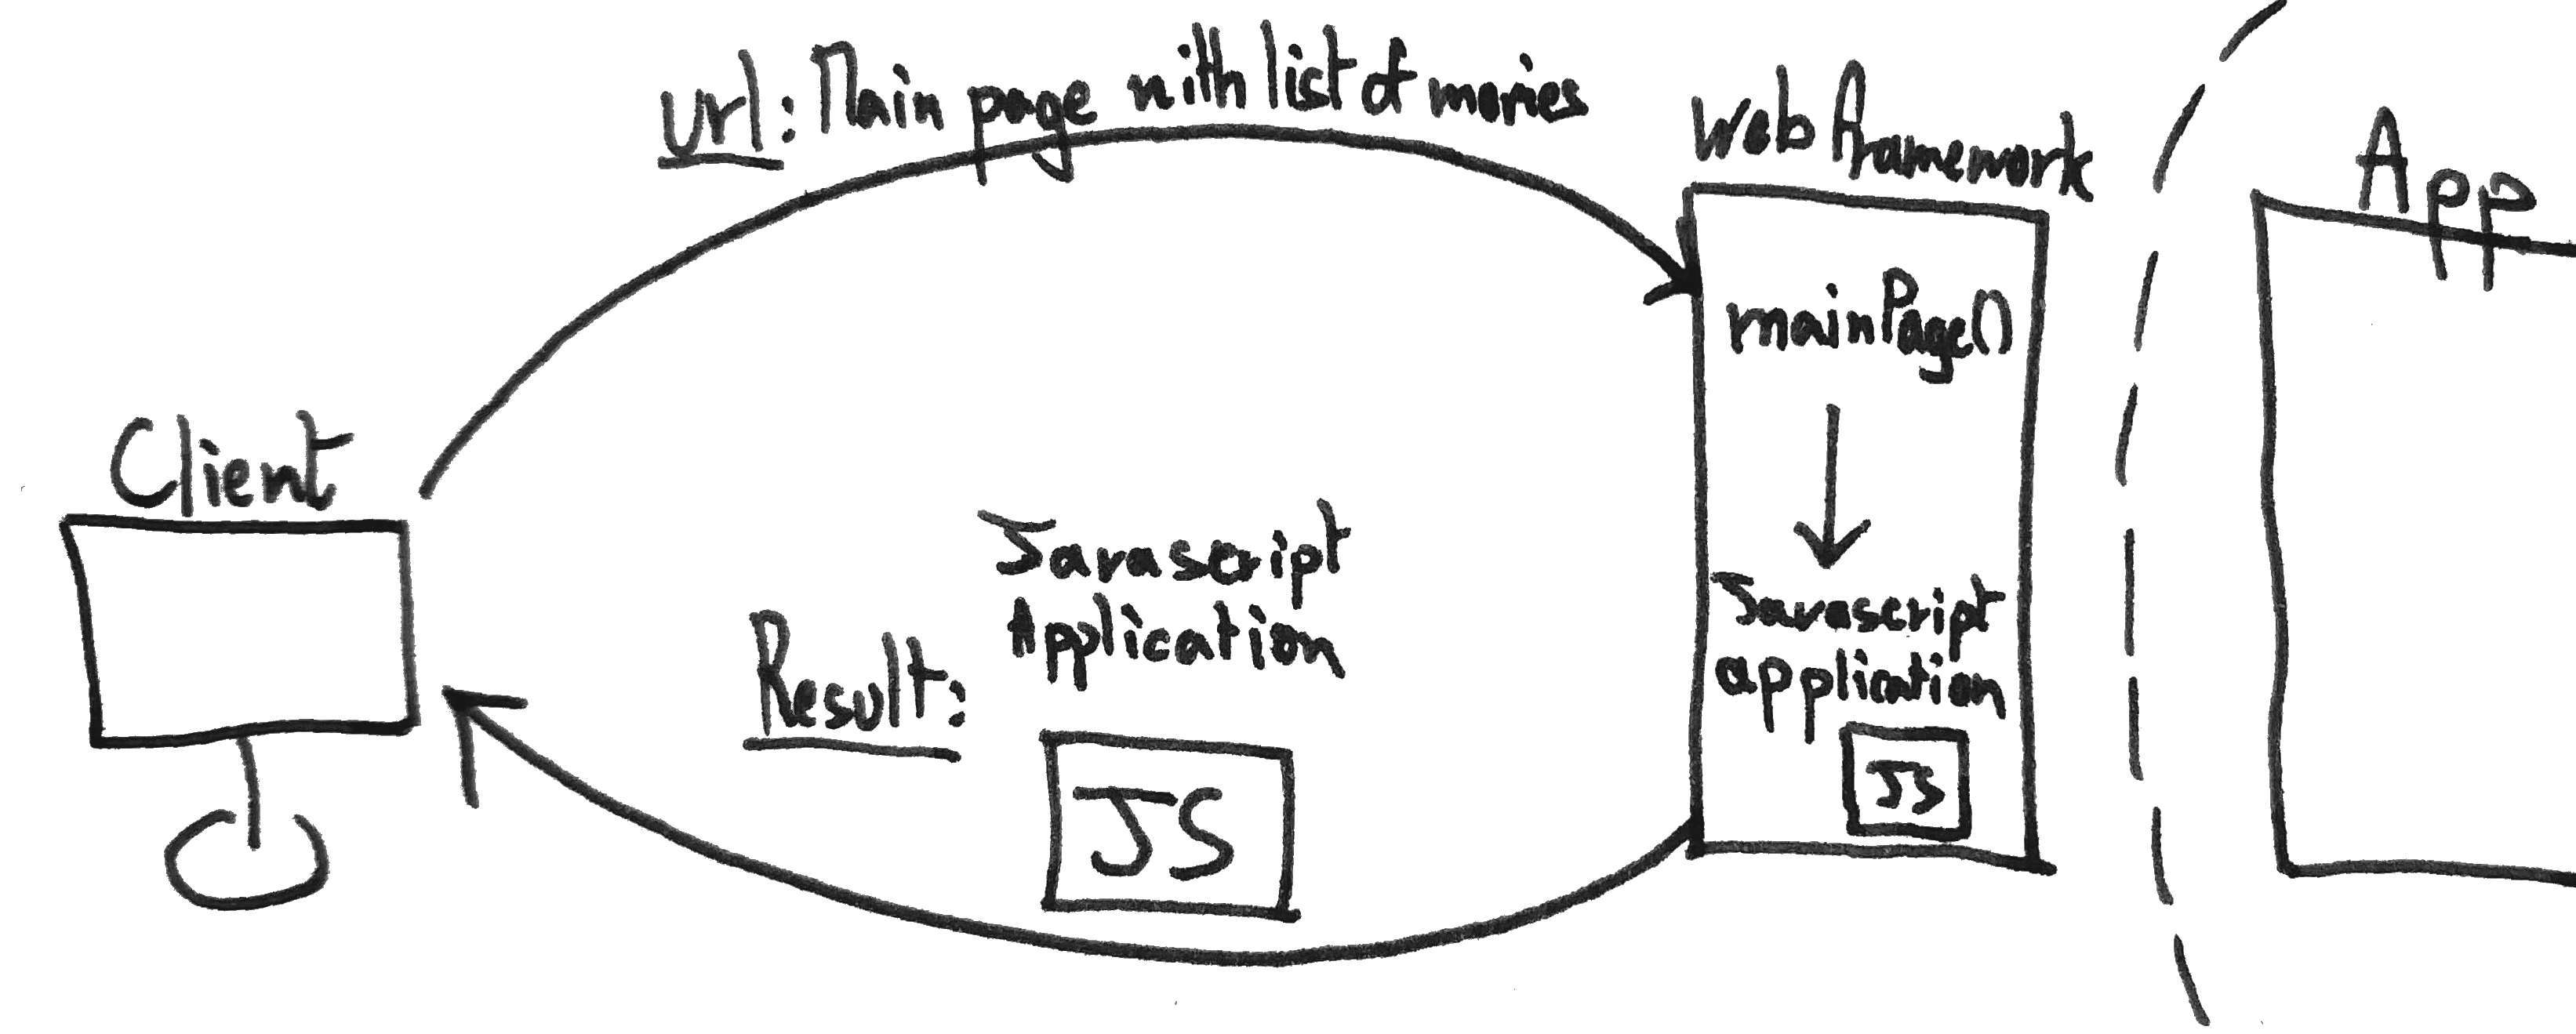 url: Main page with list of movies
Web framework
App
mainPage()
Client
Javascript
Application
Result:
JS
Javascript
application
JS